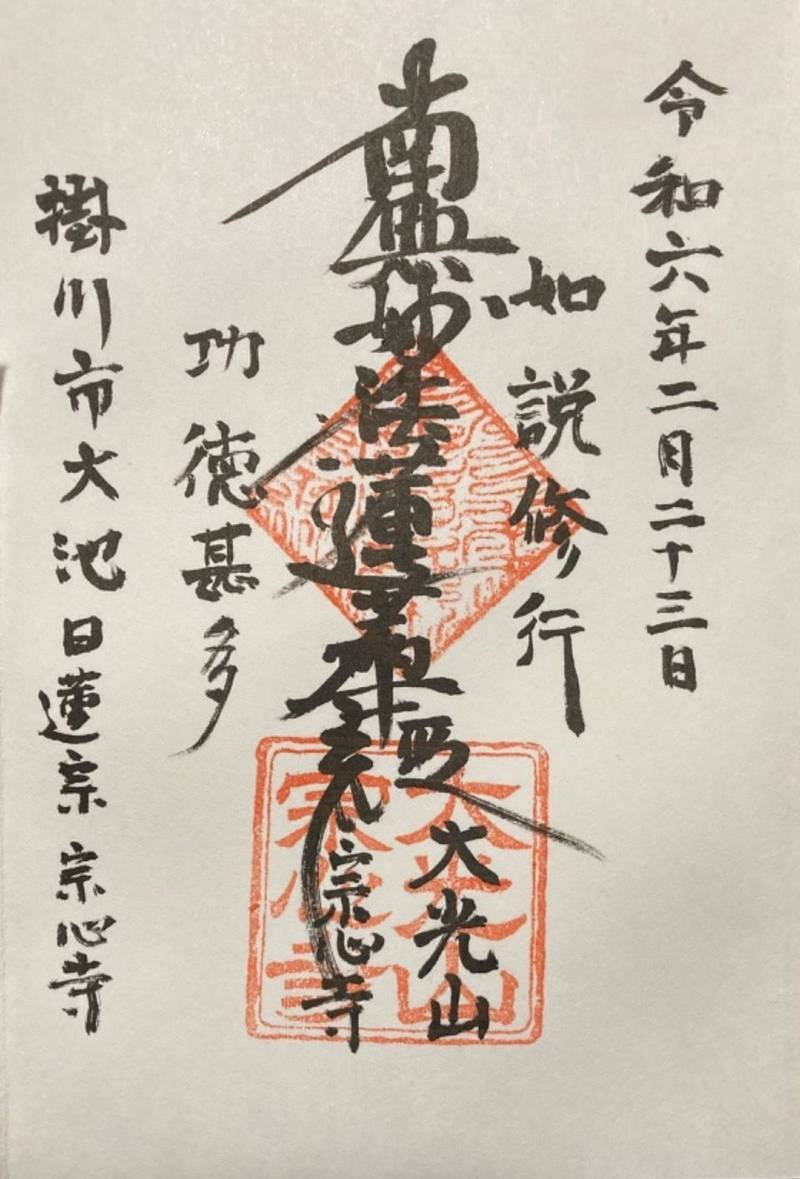 令和六年二月二十三日
如説修行
南無妙法蓮華経
大光山
宗心寺
功徳甚多
掛川市大池日蓮宗宗心寺